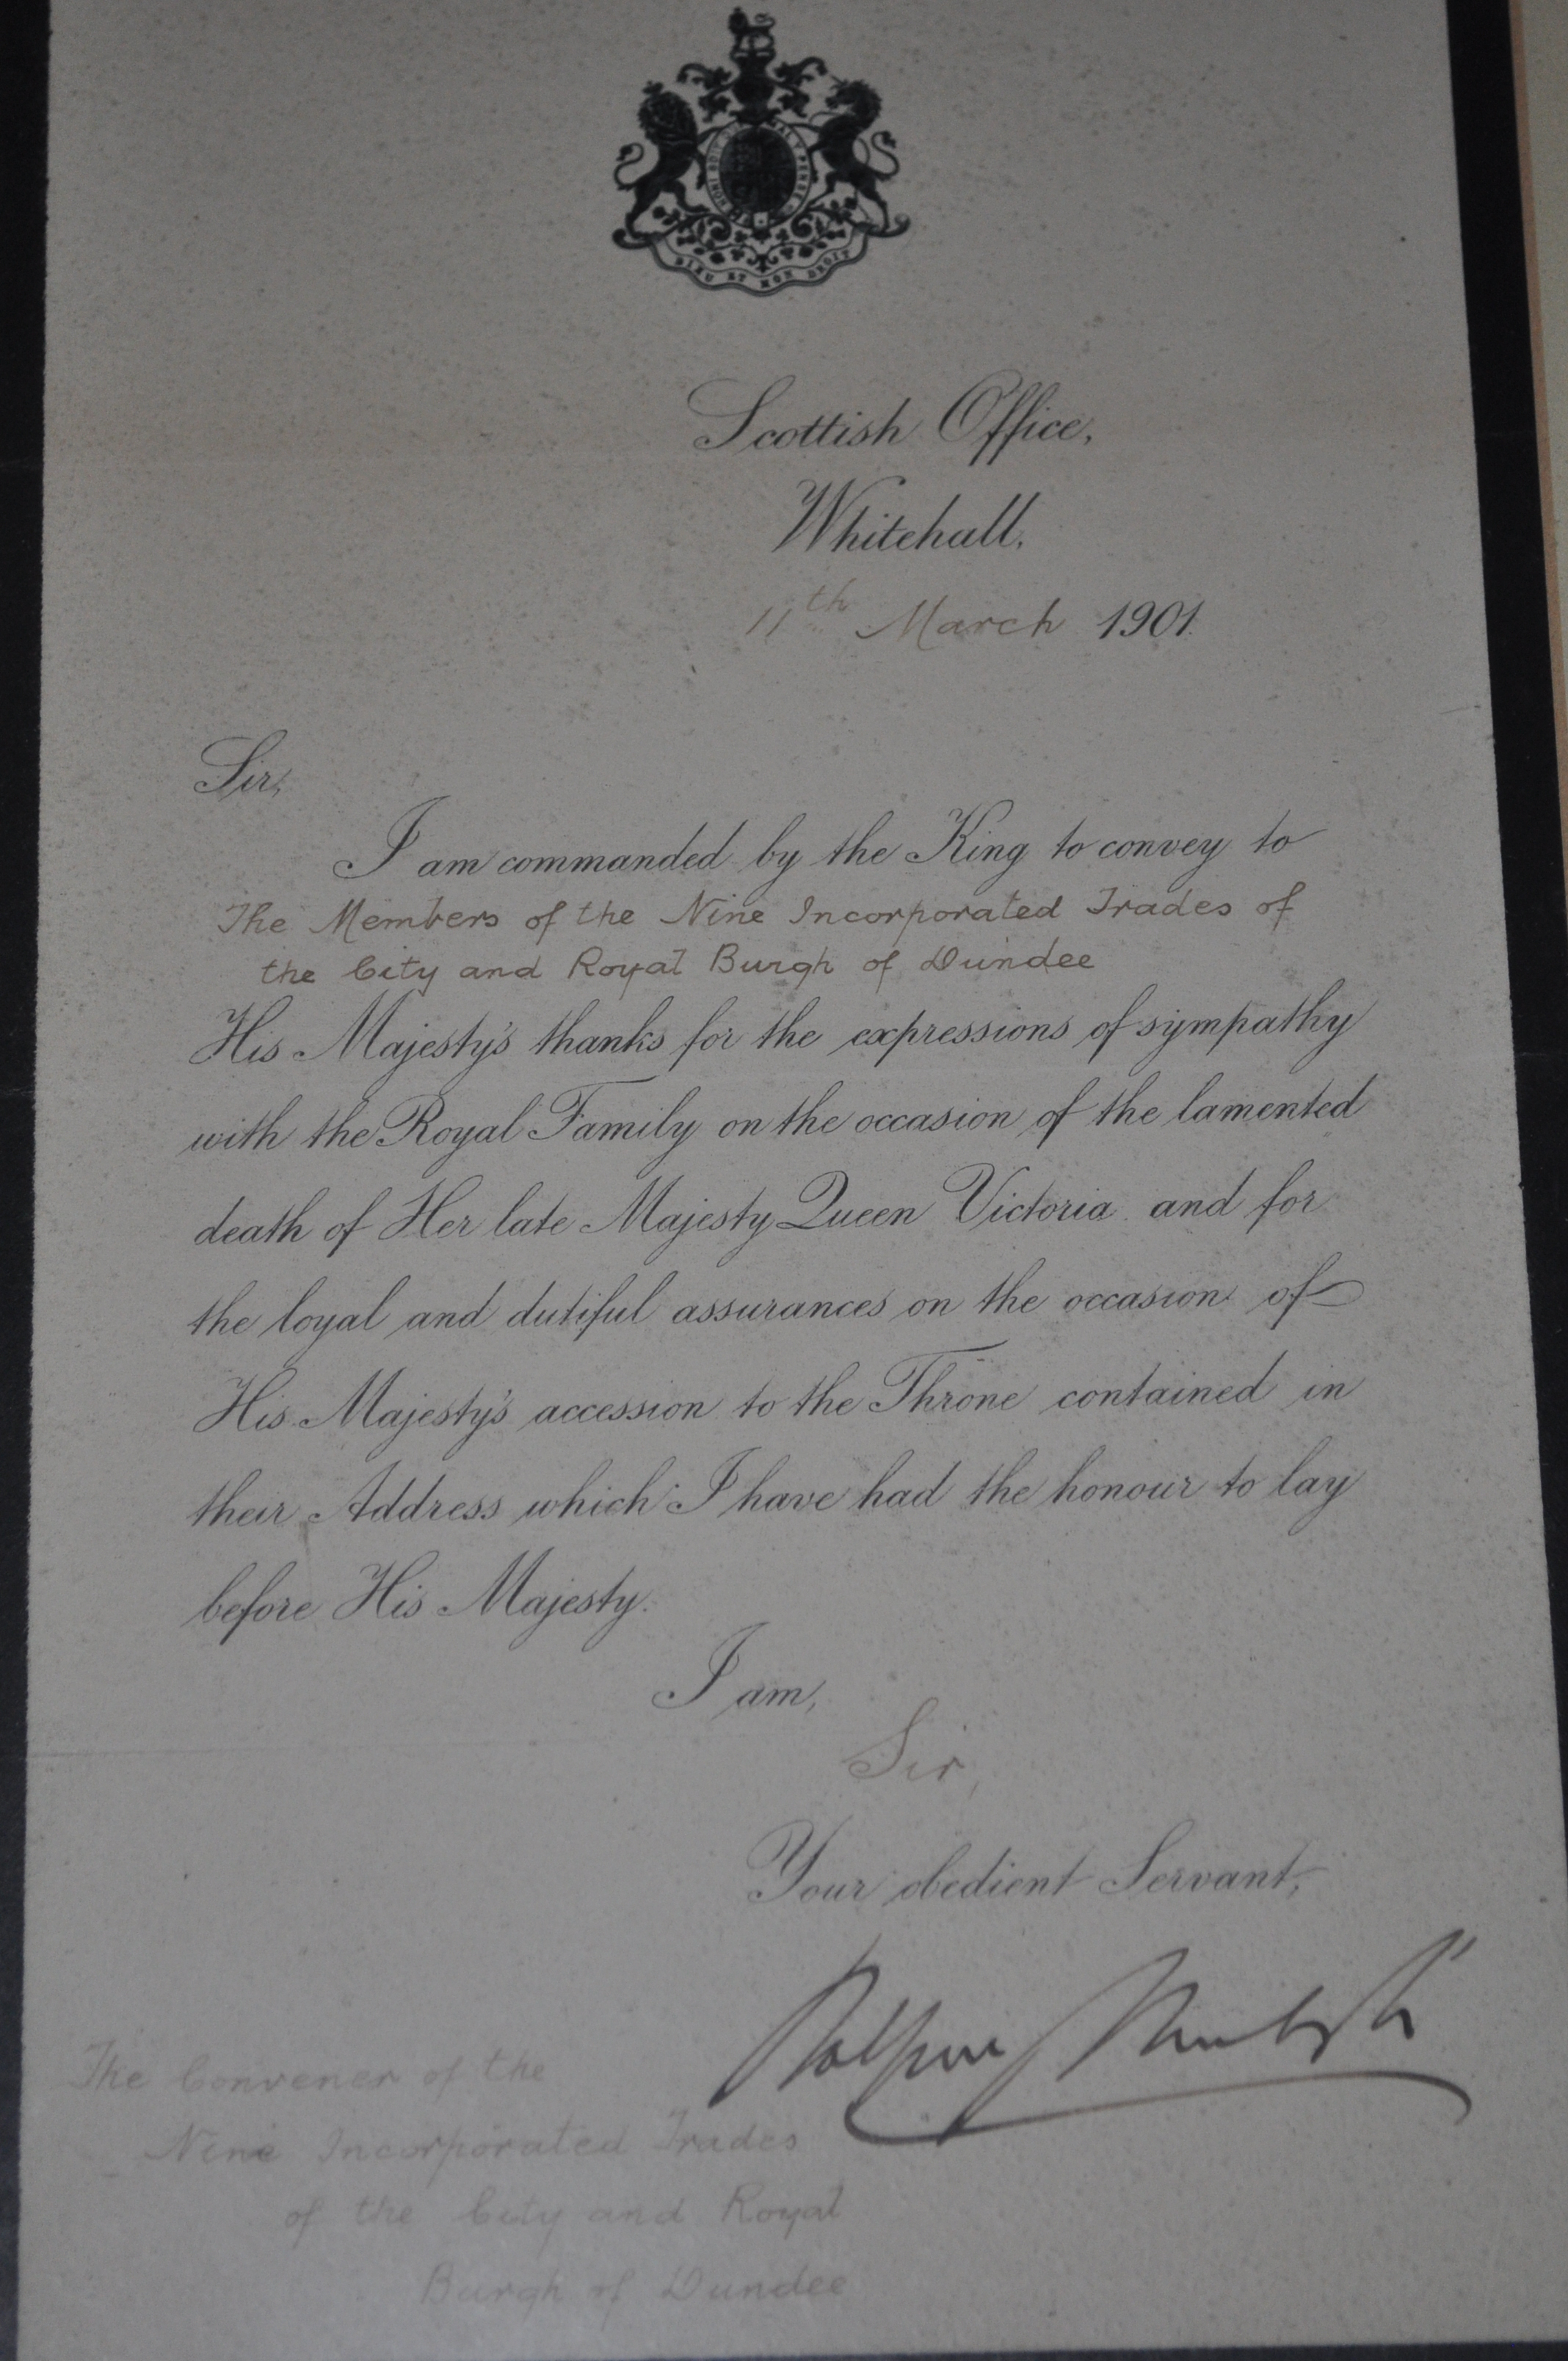 HONI SOIT QUI MAL Y PENSE
DIEU ET MON DROIT
Scottish Office,
Whitehall.
11th March 1901.
Sir,
I am commanded by the King to convey to
The Members of the Nine Incorporated Trades of
the City and Royal Burgh of Dundee
His Majesty's thanks for the expressions of sympathy
with the Royal Family on the occasion of the lamented
death of Her late Majesty Queen Victoria and for
the loyal and dutiful assurances on the occasion of
His Majesty's accession to the Throne contained in
their Address which I have had the honour to lay
before His Majesty.
I am,
Sir,
Your obedient Servant,
Balfour of Burleigh
The Convener of the
Nine Incorporated Trades
of the City and Royal
Burgh of Dundee